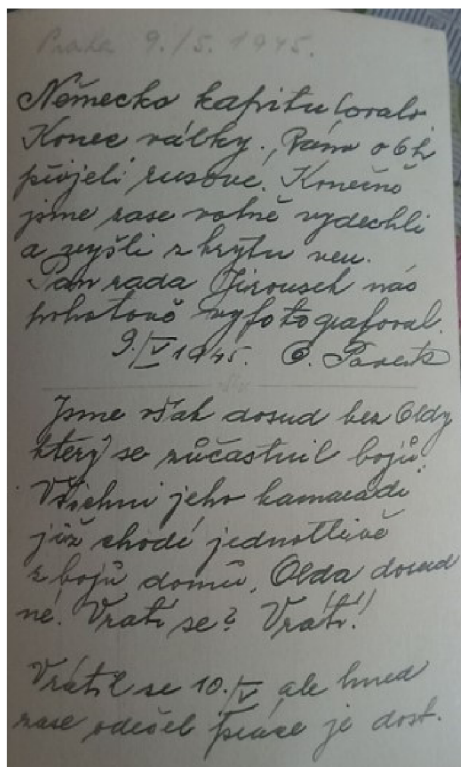 Praha 9./5. 1945.
Německo kapitulovalo
Konec války. Ráno o 6 h
přijeli rusové. Konečně
jsme zase volně vydechli
a vyšli z krytu ven.
Pan rada Jirousek nás
pohotově vyfotografoval.
9./V 1945.
Jsme však dosud bez Oldy
který se zůčastnil bojů.
Všichni jeho kamarádi
již chodí jednotlivě
z bojů domů, Olda dosud
ne. Vrátí se? Vrátí!
Vrátil se 10./V ale hned
zase odešel práce je dost.